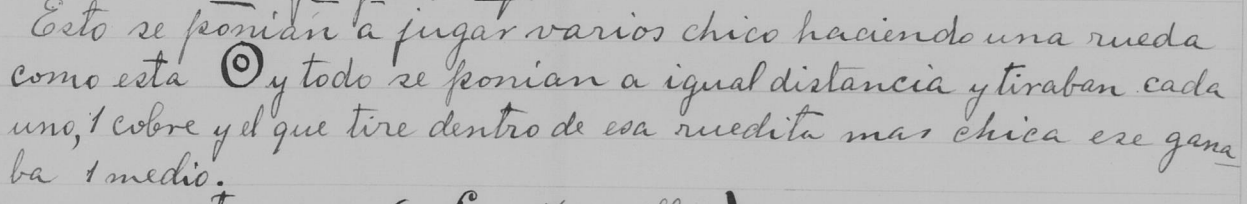 Esto se ponian a jugar varios chico haciendo una rueda
como esta ⊚ y todo se ponian a igual distancia y tiraban cada
uno, 1 cobre y el que tire dentro de esa ruedita mas chica ese gana
ba 1 medio.